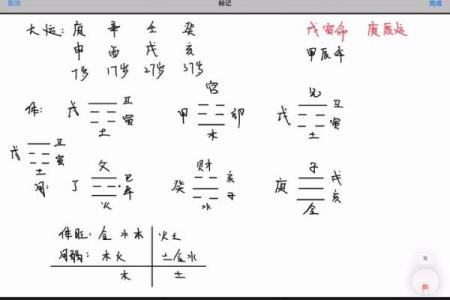 取消 标记 完成
大运: 庚 辛 壬 癸
申 酉 戌 亥
7岁 17岁 27岁 37岁
戊寅命 庚辰运
甲辰年
体: 戊 丑 寅 土
宫 甲 卯 木
兄 戊 丑 寅 土
戊 丑 寅 土
用: 父 丁 巳 午 火
财 癸 亥 子 水
子 庚 戌 亥 金
体旺: 金 水 木 火土
用弱: 木火 土金水
木 土